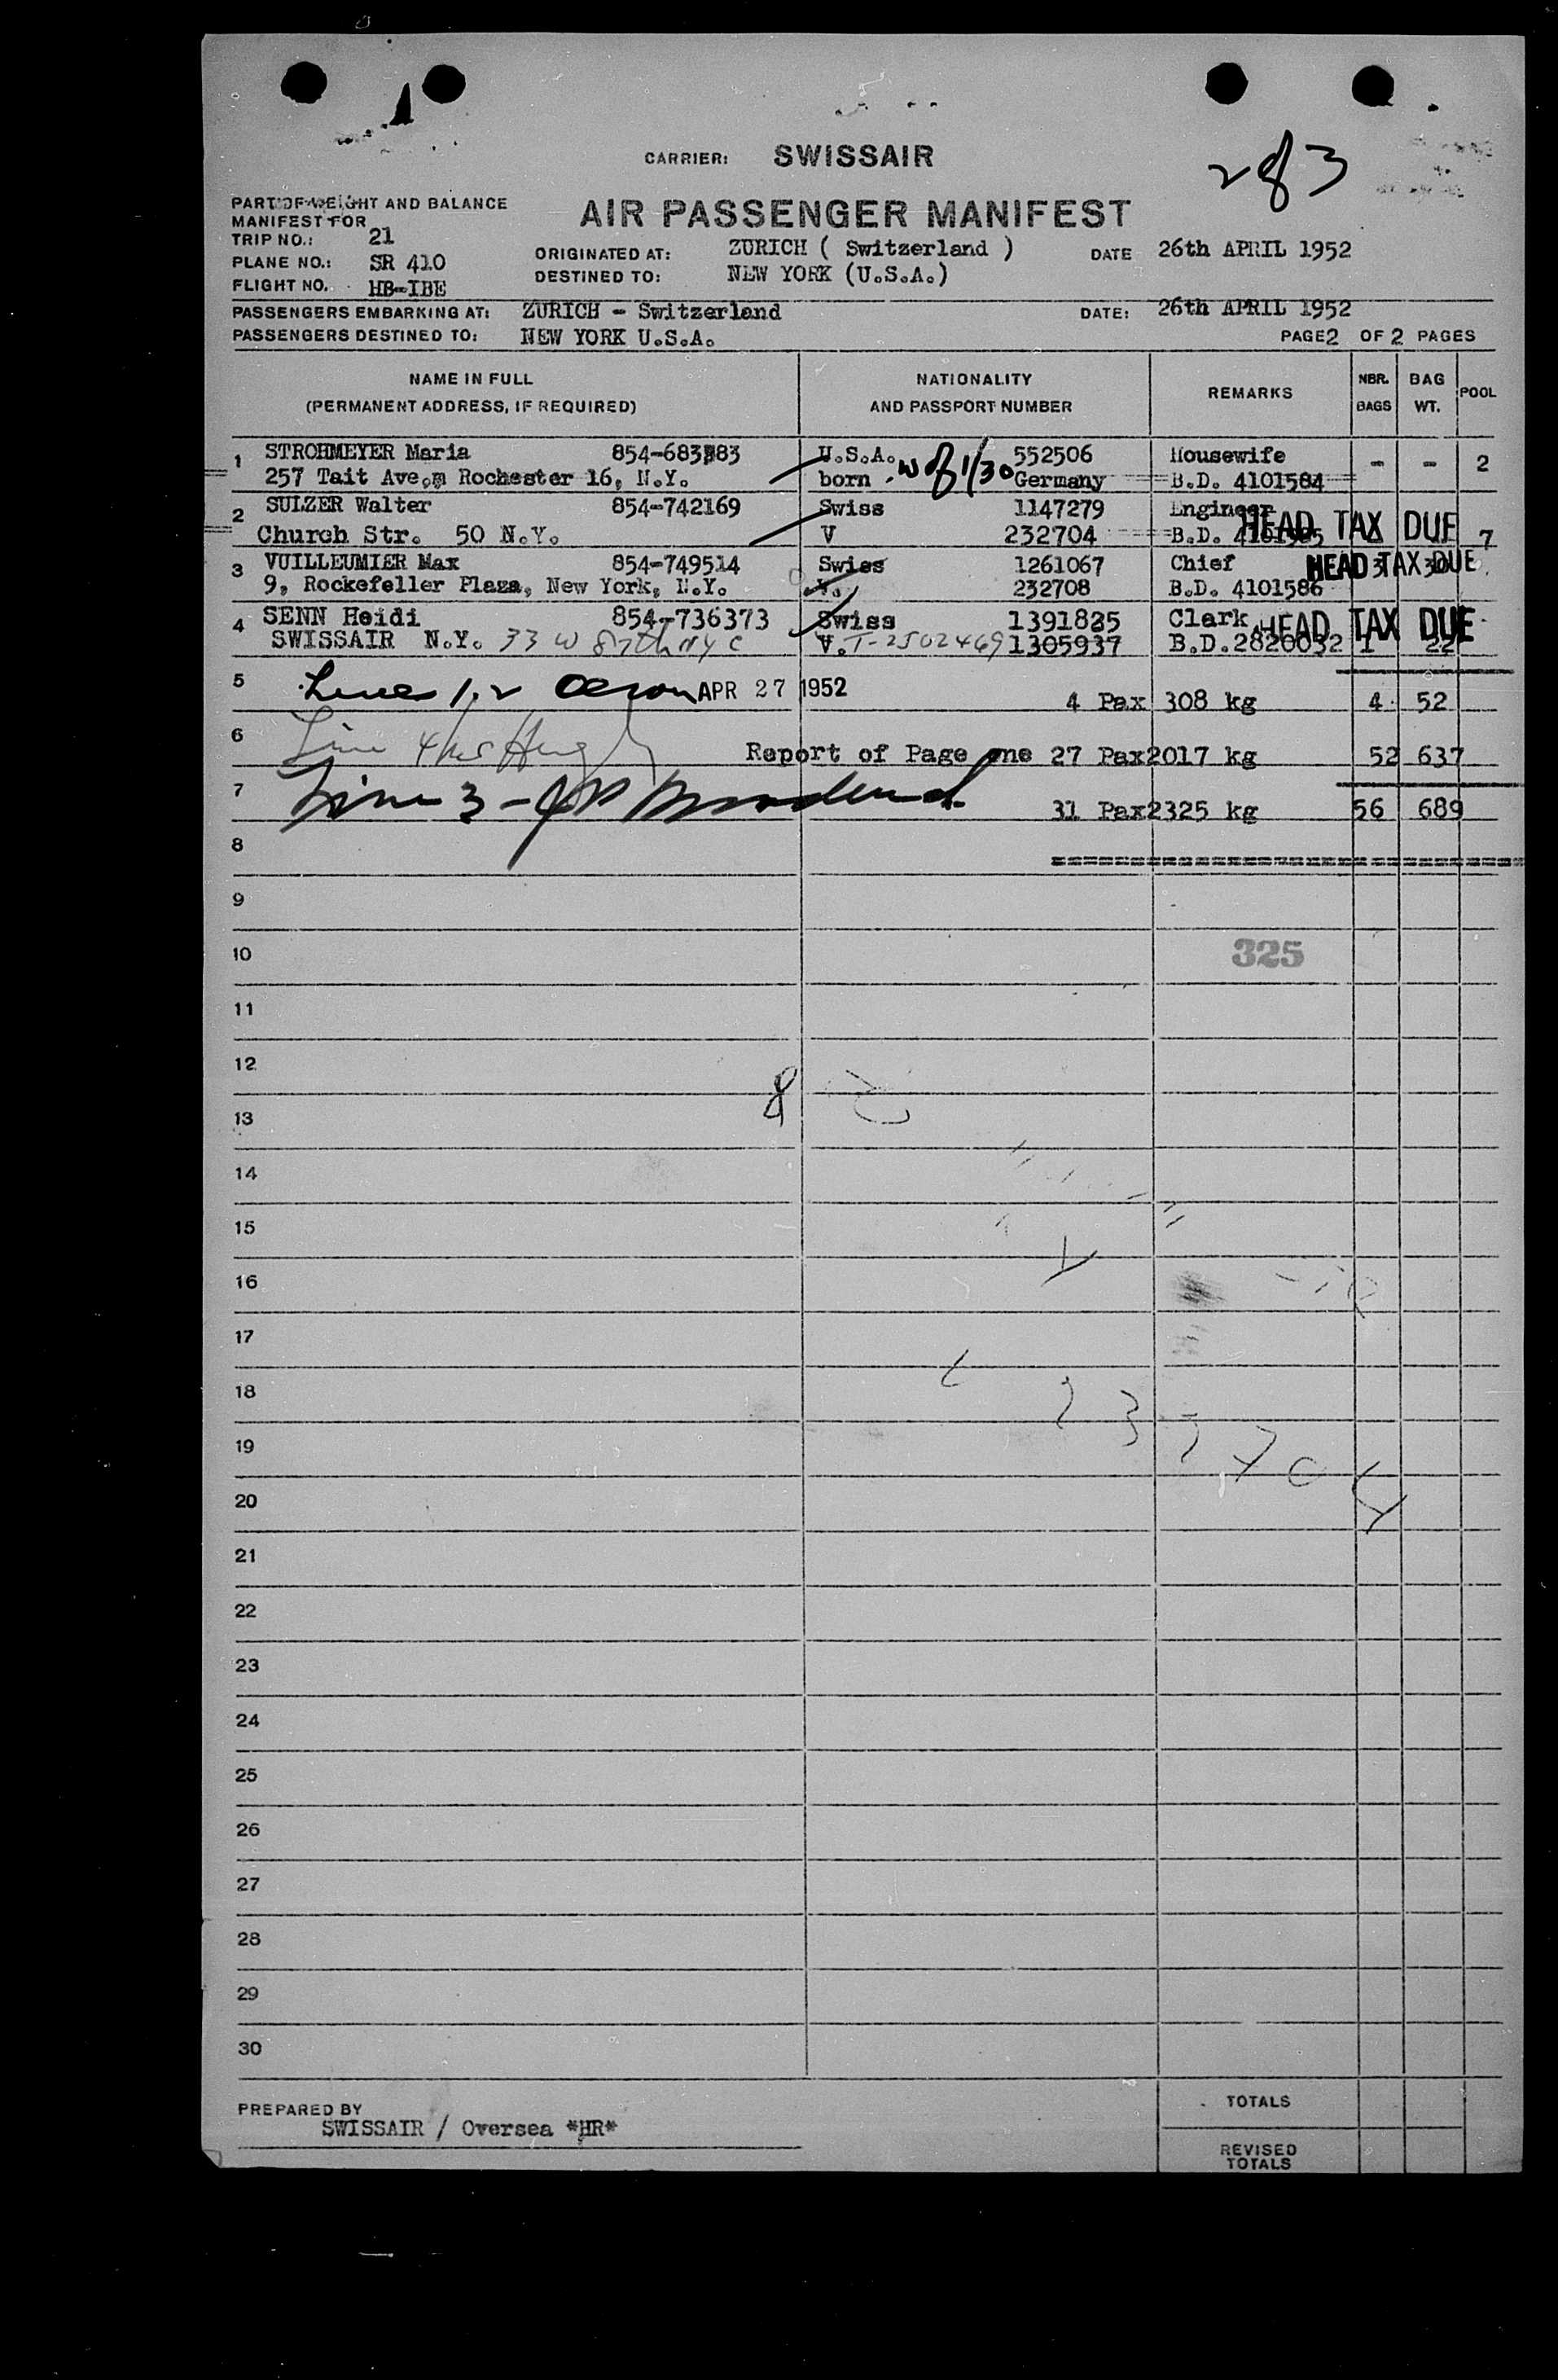 283
CARRIER: SWISSAIR
AIR PASSENGER MANIFEST
PART OF WEIGHT AND BALANCE
MANIFEST FOR
TRIP NO.: 21
PLANE NO.: SR 410
FLIGHT NO. HB-IBE
ORIGINATED AT: ZURICH ( Switzerland ) DATE 26th APRIL 1952
DESTINED TO: NEW YORK (U.S.A.)
PASSENGERS EMBARKING AT: ZURICH - Switzerland DATE: 26th APRIL 1952
PASSENGERS DESTINED TO: NEW YORK U.S.A. PAGE 2 OF 2 PAGES
NAME IN FULL NATIONALITY REMARKS NBR. BAG POOL
(PERMANENT ADDRESS, IF REQUIRED) AND PASSPORT NUMBER BAGS WT.
1 STROHMEYER Maria 854-683383 U.S.A. 552506 Housewife - - 2
257 Tait Ave. Rochester 16, N.Y. born Germany B.D. 4101584
2 SULZER Walter 854-742169 Swiss 1147279 Engineer HEAD TAX DUE
Church Str. 50 N.Y. V 232704 B.D. 4101585 7
3 VUILLEUMIER Max 854-749514 Swiss 1261067 Chief HEAD TAX DUE
9, Rockefeller Plaza, New York, N.Y. V. 232708 B.D. 4101586
4 SENN Heidi 854-736373 Swiss 1391825 Clark HEAD TAX DUE
SWISSAIR N.Y. 33 W 87th NYC V. T-2502469 1305937 B.D.2820032 1 22
5 Line 1.2 APR 27 1952 4 Pax 308 kg 4 52
6 Line 4 Report of Page one 27 Pax2017 kg 52 637
7 Line 3 - 31 Pax2325 kg 56 689
8
9
10 325
11
12
13 8
14
15
16
17
18
19
20
21
22
23
24
25
26
27
28
29
30
PREPARED BY TOTALS
SWISSAIR / Oversea *HR*
REVISED
TOTALS